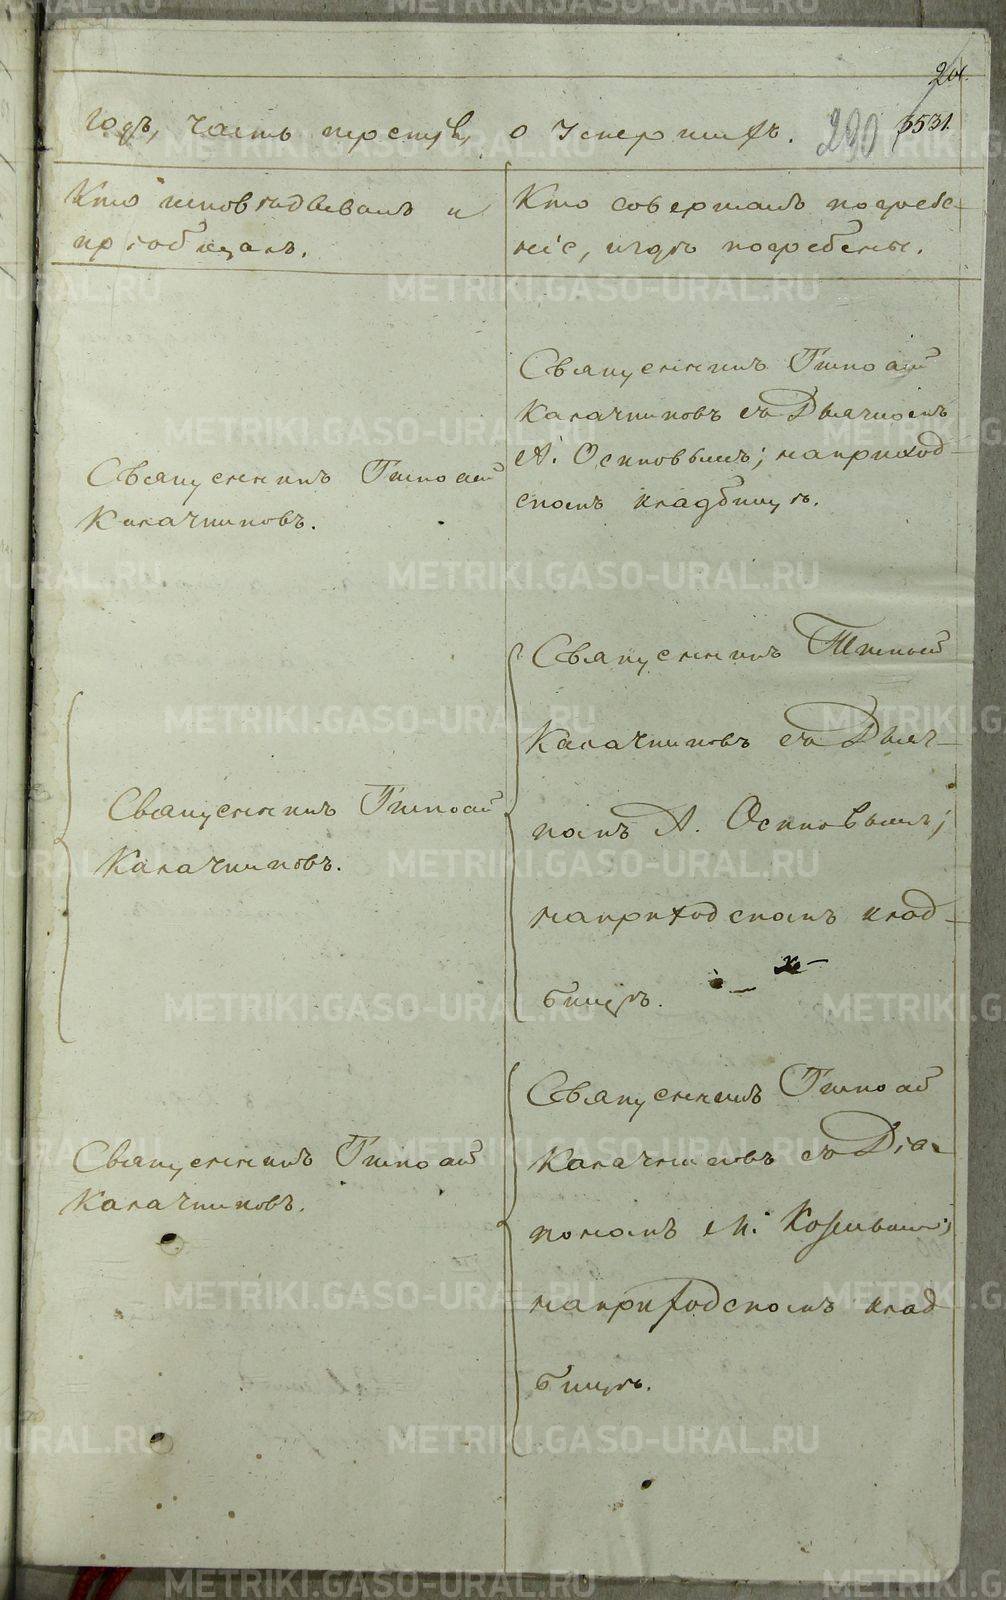 годъ, часть третія, о умершихъ.
290
3531.
Кто исповѣдывалъ и
пріобщалъ.
Кто совершалъ погребе-
ніе, и гдѣ погребены.
Священникъ Тимофей
Калачниковъ.
Священникъ Тимофей
Калачниковъ съ Дьячкомъ
А. Осиповымъ; на приход-
скомъ кладбищѣ.
Священникъ Тимофей
Калачниковъ.
Священникъ Тимофей
Калачниковъ съ Дьяч-
комъ А. Осиповымъ;
на приходскомъ клад-
бищѣ.
Священникъ Тимофей
Калачниковъ.
Священникъ Тимофей
Калачниковъ съ Діа-
кономъ М.
на приходскомъ клад
бищѣ.
METRIKI.GASO-URAL.RU